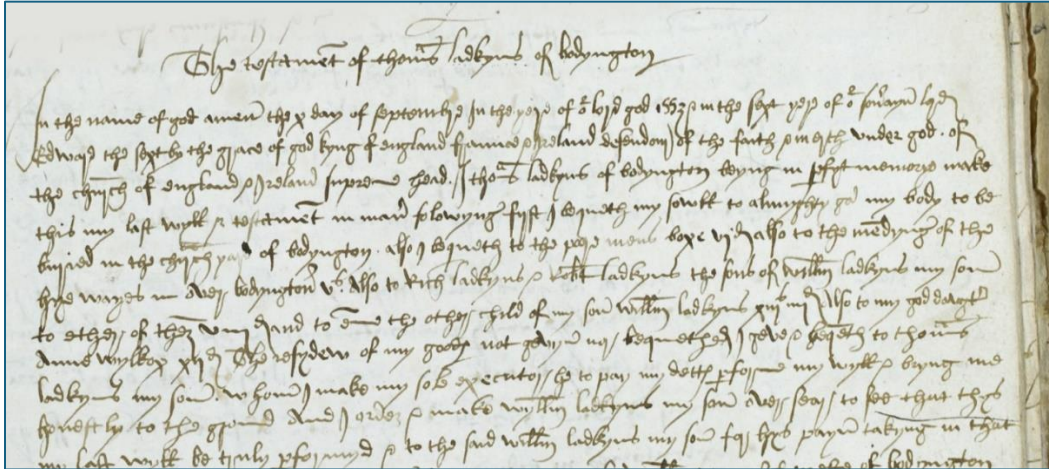 The testament of thoms ladkyns of bodyngton
In the name of god amen the x day of septembre In the yere of or lord god 1552 & in the sext yere of or soverayn lord
Edward the sext by the grace of god kyng of england france & Ireland defendour of the faith & in erth under god of
the chirch of england & Ireland supreme head. I thoms ladkyns of bodyngton beyng in perfyt memorye make
this my last wyll & testament in maner folowyng fyrst I bequeth my sowll to almyghty god my body to be
buried in the chirch yard of bodyngton. also I bequeth to the pore mens boxe vjd also to the medyng of the
hye wayes in over bodyngton vs. Also to Rich ladkyns & Robt ladkyns the sons of willm ladkyns my son
to ether of them and to the other child of my son willm ladkyns Also to my god doagter
Anne wylkox xijd The resydew of my goods not gevyn nor bequethed I geve & bequeth to thoms
ladkyns my son whom I make my sole executor he to pay my detts performe my wyll & bryng me
honestly to the ground And I order & make willm ladkyns my son over sear to see that thys
my last wyll be truly performyd & to the said willm ladkyns my son for hys payn takyng in that
of bodyngton